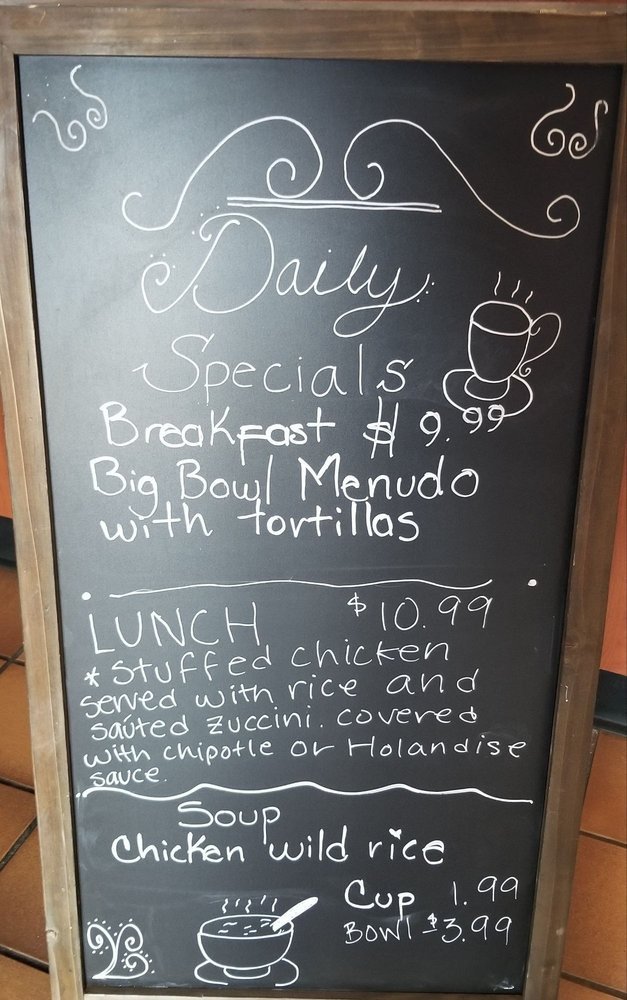 Daily
Specials
Breakfast $ 9.99
Big Bowl Menudo
with tortillas
LUNCH $10.99
* Stuffed chicken
served with rice and
saúted zuccini. covered
with chipotle or Holandise
sauce.
Soup
Chicken wild rice
Cup 1.99
BOWl $3.99